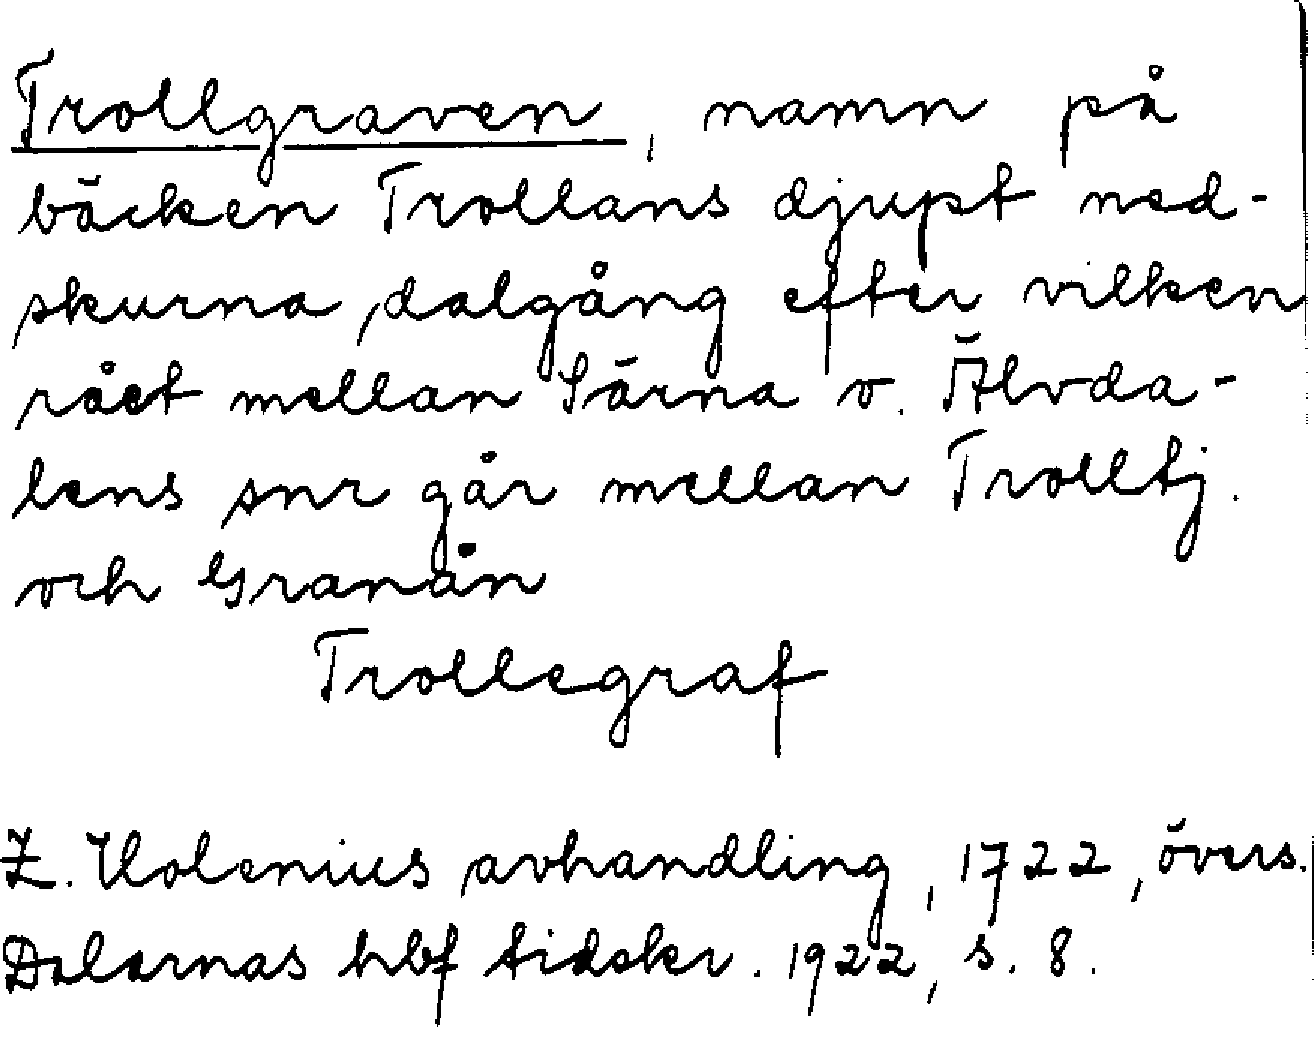 Trollgraven, namn på
bäcken Trollans djupt ned-
skurna dalgång efter vilken
rået mellan Särna o. Älvda-
lens snr går mellan Trolltj.
och Granån
Trollegraf
Z. Holenius avhandling, 1722, övers.
Dalarnas hbf tidskr. 1922, s. 8.